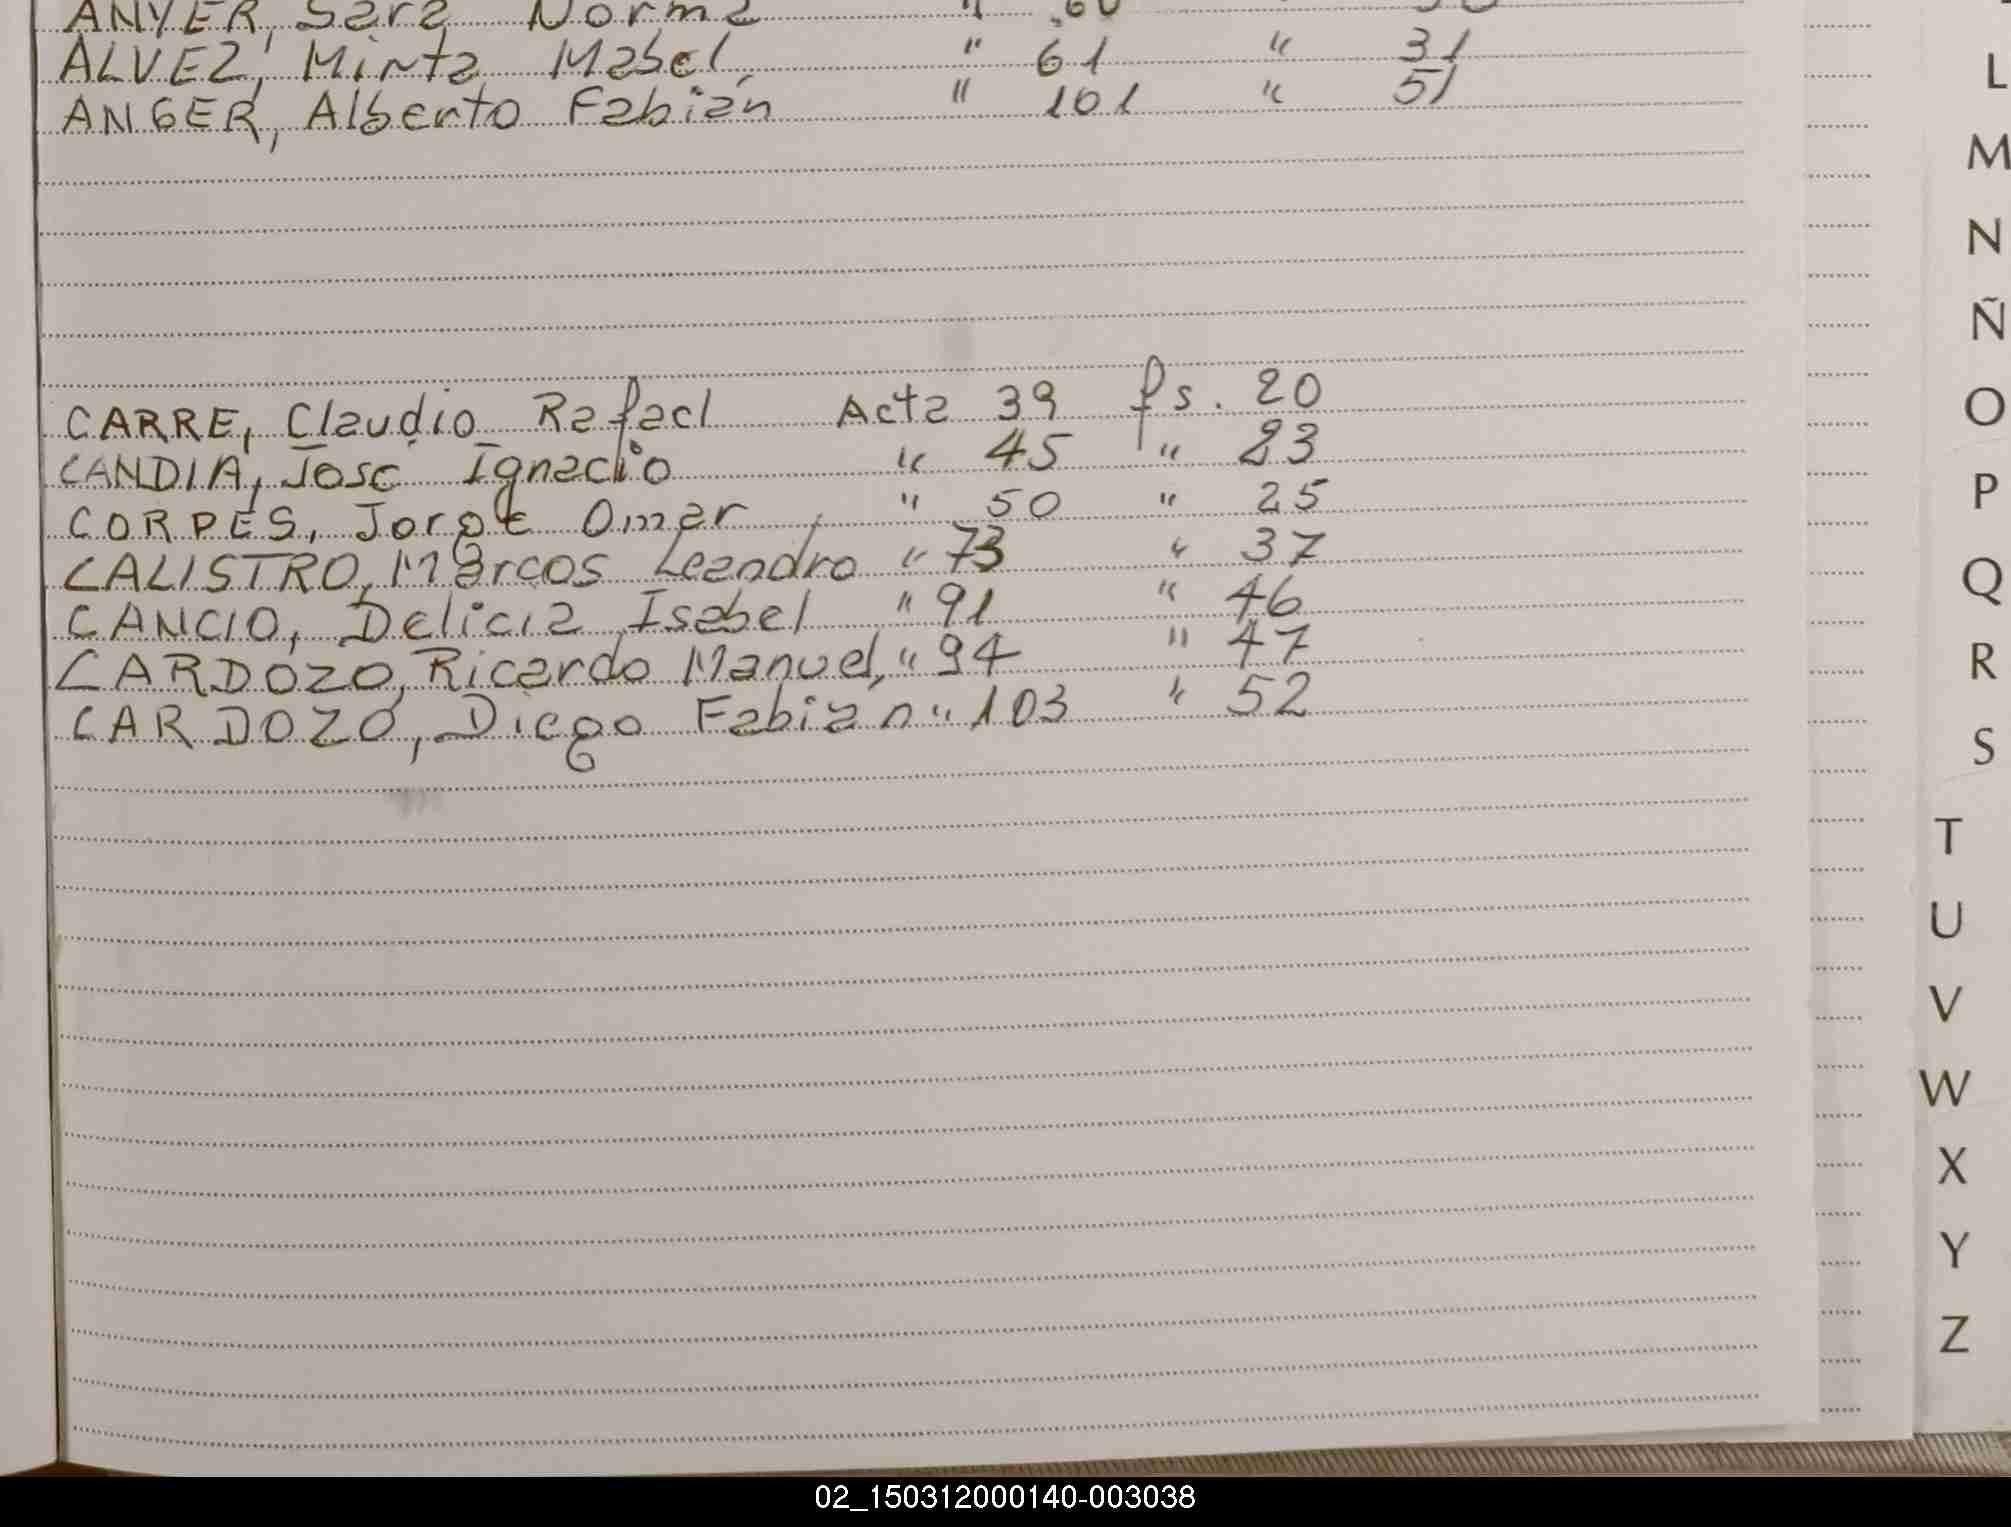 ANYER, Sara Norma " 60
ALVEZ, Mirta Mabel, " 61 " 31
ANGER, Alberto Fabián " 101 " 51
CARRE, Claudio Rafael Acta 39 fs. 20
CANDIA, José Ignacio " 45 " 23
CORPES, Jorge Omar " 50 " 25
CALISTRO, Marcos Leandro " 73 " 37
CANCIO, Delicia Isabel " 91 " 46
CARDOZO, Ricardo Manuel, " 94 " 47
CARDOZO, Diego Fabian " 103 " 52
L
M
N
Ñ
O
P
Q
R
S
T
U
V
W
X
Y
Z
02_150312000140-003038